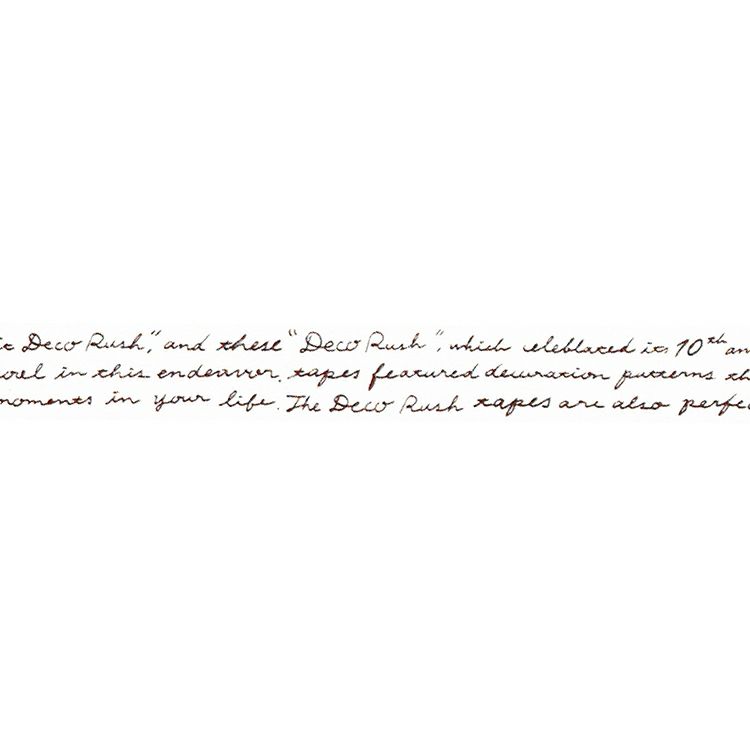 Deco Rush", and these "Deco Rush", which eleblated its 10th an
in this endeavor. tapes featured decoration patterns th
moments in your life. The Deco Rush tapes are also perfec